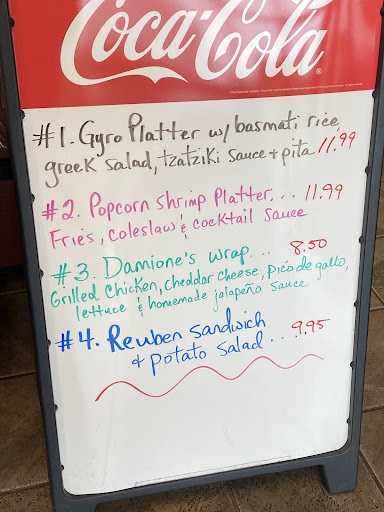 Coca-Cola
#1. Gyro Platter w/ basmati rice,
greek salad, tzatziki sauce + pita 11.99
#2. Popcorn Shrimp Platter... 11.99
Fries, coleslaw & cocktail sauce
#3. Damione's wrap... 8.50
Grilled chicken, cheddar cheese, pico de gallo,
lettuce & homemade jalapeño sauce
#4. Reuben sandwich
& potato salad..... 9.95